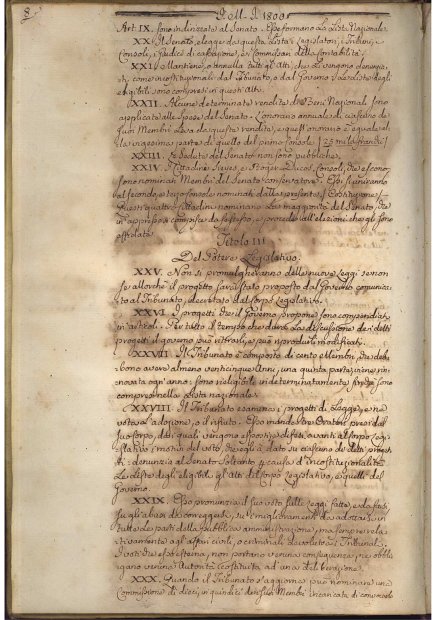 8.
A. M. D. 1800.
Art IX. sono indirizzate al Senato. Esse formano la Lista Nazionale.
XX. Il Senato elegge da questa Lista i Legislatori, i Tribuni, i
Consoli, i Giudici di cassazione, e i Commissari della contabilità.
XXI. Mantiene, o annulla tutti gli Atti, che li vengono denunzia-
ti, come incostituzionali dal Tribunato, o dal Governo: le Liste degli
eligibili sono comprese in questi Atti.
XXII. Alcune determinate rendite de' Beni Nazionali sono
applicate alle Spese del Senato. L'onorario annuale di ciascuno de
suoi Membri leva da queste rendite, e quest'onorario è eguale al-
la vigesima parte di quello del primo Console (25 mila franchi)
XXIII. Le Sedute del Senato non sono pubbliche.
XXIV. I Cittadini Sieyes, e Roger Ducos, Consoli, che escono,
sono nominati Membri del Senato conservatore. Essi si uniranno
al secondo, e terzo Console nominati dalla presente Costituzione;
questi quattro Cittadini nominano la maggiorità del Senato, che
in appresso si compisce da se stesso, e procede all'elezioni che gli sono
affidate.
Titolo III.
Del Potere Legislativo.
XXV. Non si promulgheranno delle nuove Leggi se non
se allorchè il progetto sarà stato proposto dal Governo, comunica-
to al Tribunato, decretato dal corpo Legislativo.
XXVI. I progetti che il Governo propone sono compendiati
in articoli. Per tutto il tempo che dura la discussione de' detti
progetti il governo può ritirarli, e può riprodurli modificati.
XXVII. Il Tribunato è composto di cento Membri, che deb-
bono avere almeno venticinque Anni, una quinta parte viene rin-
novata ogn'anno; sono rieligibili indeterminatamente finchè sono
compresi nella Lista nazionale.
XXVIII. Il Tribunato esamina i progetti di Legge, e ne
vota l'adozione, o il rifiuto. Esso manda tre Oratori presi dal
suo corpo, dai quali vengono esposti, e difesi avanti al Corpo Leg-
islativo i motivi del voto, che egli à dato su ciascuno de' detti proget-
ti: denunzia al Senato soltanto per causa d'incostituzionalità
le Liste degli eligibili, gli Atti del Corpo Legislativo, e quelli del
Governo.
XXIX. Esso pronunzia il suo voto sulle Leggi fatte, e da farsi,
su gli abusi da correggersi, su i miglioramenti da adottarsi in
tutte le parti della pubblica amministrazione, ma sempre rela-
tivamente agl'affari civili, o criminali devoluti a' Tribunali.
I voti che esso esterna, non portano veruna conseguenza, nè obbli-
gano veruna Autorità costituita ad una deliberazione.
XXX. Quando il Tribunato s'aggiorna può nominare una
Commissione di dieci, in quindici de' suoi Membri incaricata di convocarlo